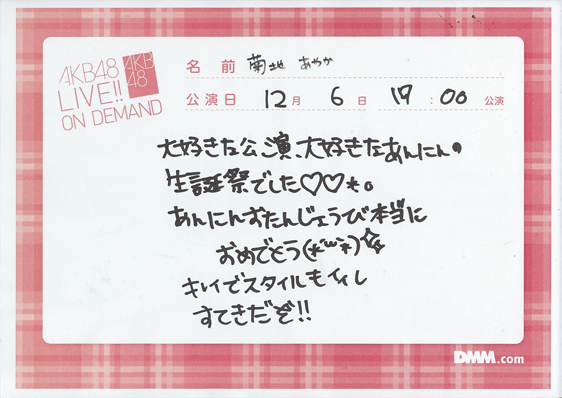 AKB48
LIVE!!
ON DEMAND
AKB
48
名前 菊地 あやか
公演日 12月 6日 19:00 公演
大好きな公演、大好きなあんにんの
生誕祭でした♡♡*。
あんにんおたんじょうび本当に
おめでとう(*´˘`*)☆
キレイでスタイルもイイし
すてきだぞ!!
DMM.com